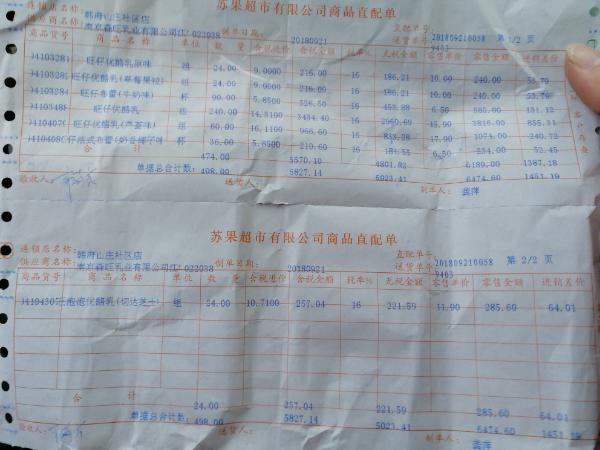 苏果超市有限公司商品直配单
连锁店名称: 韩府山庄社区店 直配单号
供应商名称: 南京森旺乳业有限公司江 022038 制单日期: 20180921 送货单号 201809210058 第 1/2 页
9403
商品货号 商品名称 单位 数量 含税进价 含税金额 税率% 无税金额 零售单价 零售金额 进销差价
J410328 旺仔优酪乳原味 组 24.00 9.0000 216.00 16 186.21 10.00 240.00
J410328 旺仔优酪乳(草莓果粒) 组 24.00 9.0000 216.00 16 186.21 10.00 240.00
J410328 旺仔卷蕾(牛奶味) 杯 90.00 5.8500 526.50 16 453.88 6.50 585.00 131.12
J410348 旺仔优酪乳 组 240.00 14.3100 3434.40 16 2960.69 15.90 3816.00 855.31
J410407 旺仔优酪乳(芦荟味) 组 60.00 16.1100 966.60 16 833.28 17.90 1074.00 240.72
J410408 杯 36.00 5.8500 210.60 16 181.55 6.50 234.00 52.45
合计 474.00 5570.10 4801.82 6189.00 1387.18
单据总合计数: 498.00 5827.14 5023.41 6474.60 1451.19
验收人: 送货人: 制单人: 龚萍
苏果超市有限公司商品直配单
连锁店名称: 韩府山庄社区店 直配单号
供应商名称: 南京森旺乳业有限公司江 022038 制单日期: 20180921 送货单号 201809210058 第 2/2 页
9403
商品货号 商品名称 单位 数量 含税进价 含税金额 税率% 无税金额 零售单价 零售金额 进销差价
J410430 旺抱抱优酪乳(切达芝士) 组 24.00 10.7100 257.04 16 221.59 11.90 285.60 64.01
合计 24.00 257.04 221.59 285.60 64.01
单据总合计数: 498.00 5827.14 5023.41 6474.60 1451.19
验收人: 送货人: 制单人: 龚萍